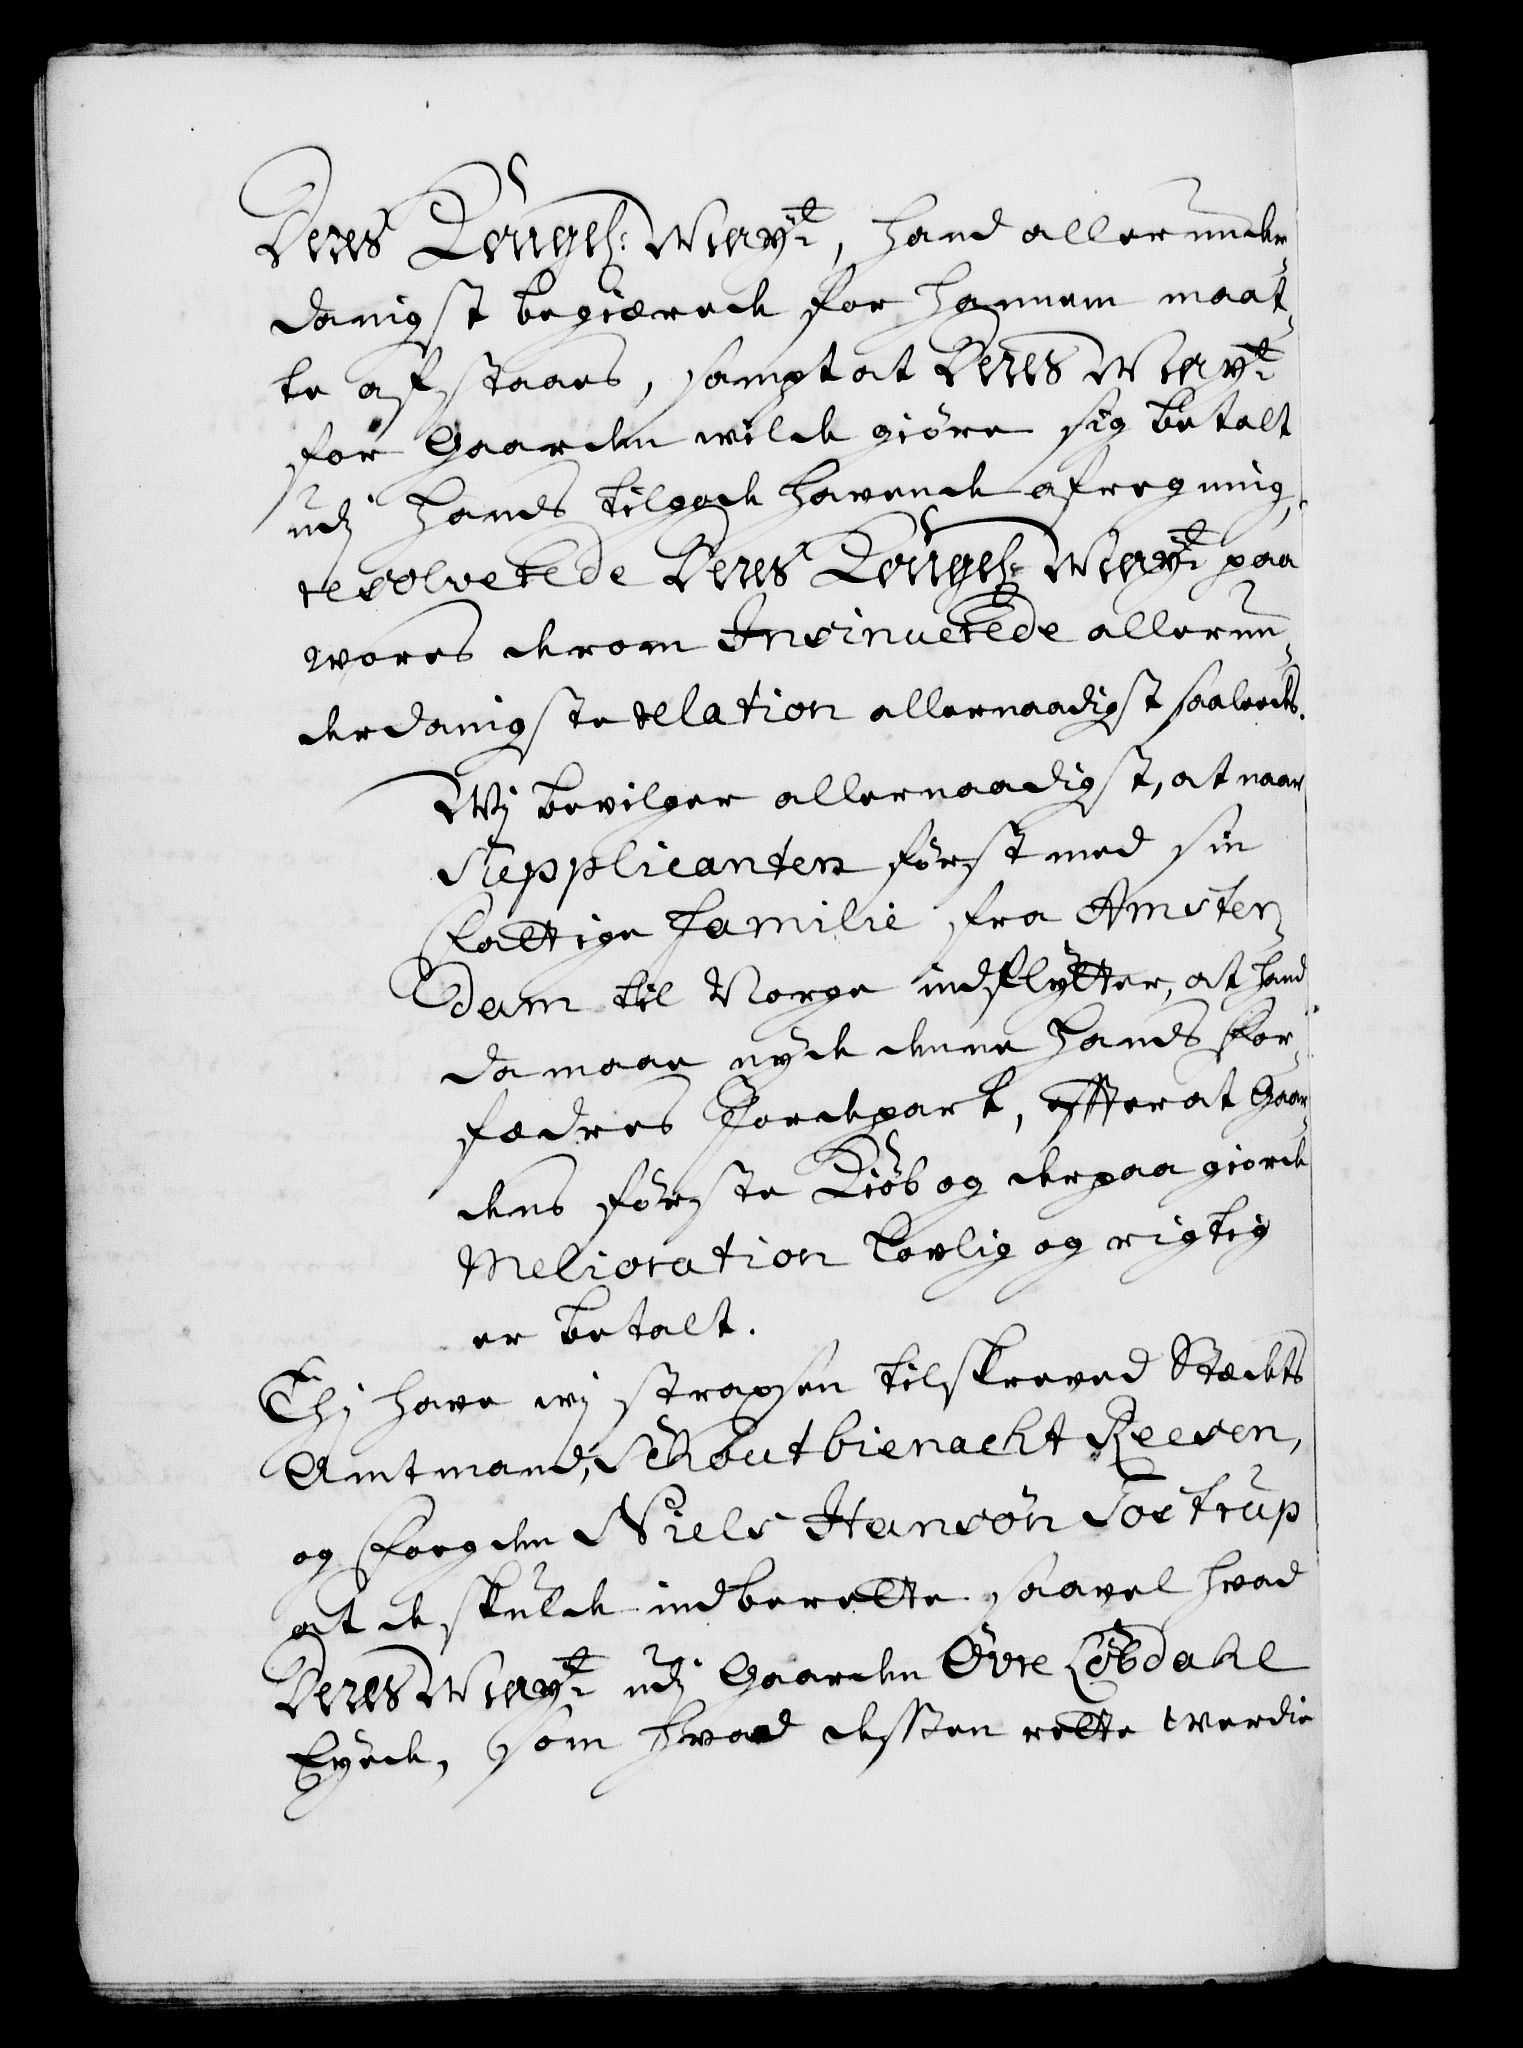 Deres Kongel: May.t, hand allerunder¬
danigst begierede for hannem maat¬
te afstaaes, sampt at Deres May.t
for Gaarden wilde giöre sig betalt
udj hands tilgode havende afregning,
resolverede Deres Kongel: May.t paa
wores derom Insinuerede allerun¬
derdanigste relation allernaadigst saaleedes.
Wj bevilger allernaadigst, at naar
Supplicanten först med sin
fattige Familie fra Amster¬
dam til Norge indflytter, at hand
da maae nyde denne hands for¬
fædres Jordepart, efter at Gaar¬
dens förste Kiöb og derpaa giorde
Melioration lovlig og rigtig
er betalt.
Thj have wj strax¬en tilskreved Stedets
Amtmand, Schoutbienacht Reesen,
og Fogden Niels Hansön Tostrup
at de skulde indberette saavel hvad
Deres May.t udj Gaarden Övre Löbdahl
Eyede, som hvad dessen rette werdie